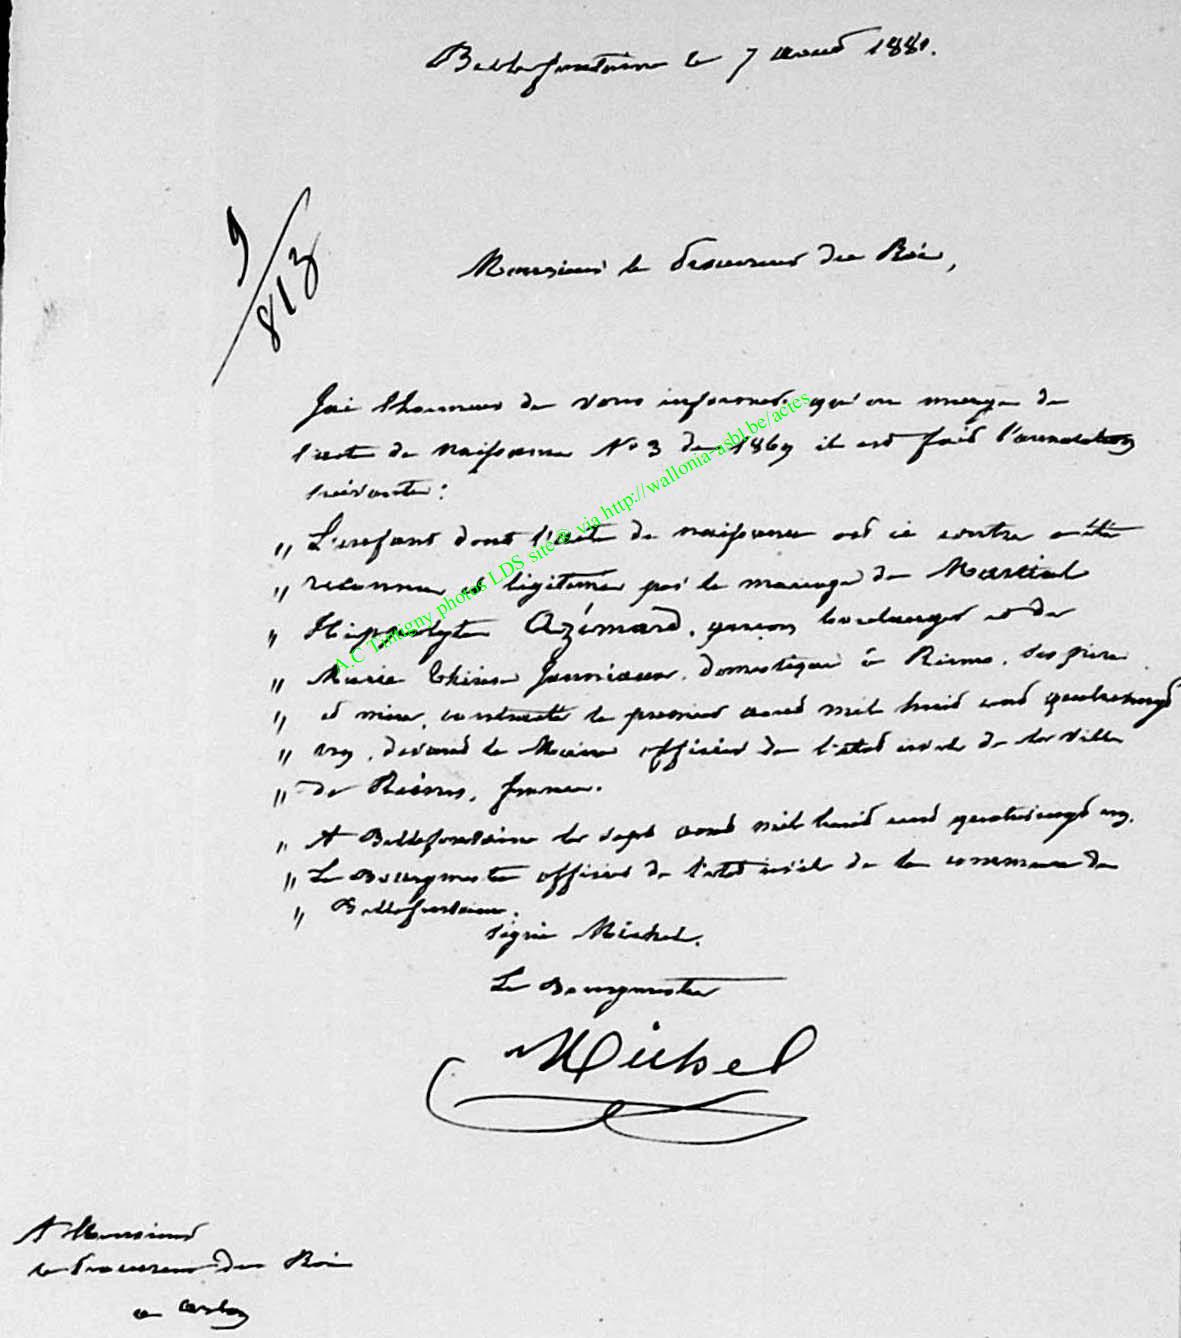 Bellefontaine le 7 aout 1881.
9/813
Monsieur le Procureur du Roi,
J'ai l'honneur de vous informer, qu'en marge de
l'acte de naissance N° 3 de 1869 il est fait l'annotation
suivante :
" L'enfant dont l'acte de naissance est ci contre a été
" reconnu et légitimé par le mariage de Martial
" Hippolyte Azémard, garçon boulanger et de
" Marie Thérèse Jeanniaux, domestique à Reims, ses père
" et mère, contracté le premier aout mil huit cent quatrevingt
" un, devant le Maire officier de l'état civil de la ville
" de Reims, france.
" A Bellefontaine le sept aout mil huit cent quatrevingt un.
" Le Bourgmestre officier de l'état civil de la commune de
" Bellefontaine.
signé Michel.
Le Bourgmestre
Michel
A Monsieur
le Procureur du Roi
a Arlon
A.C Tintigny photos LDS site® via http://wallonia-asbl.be/actes